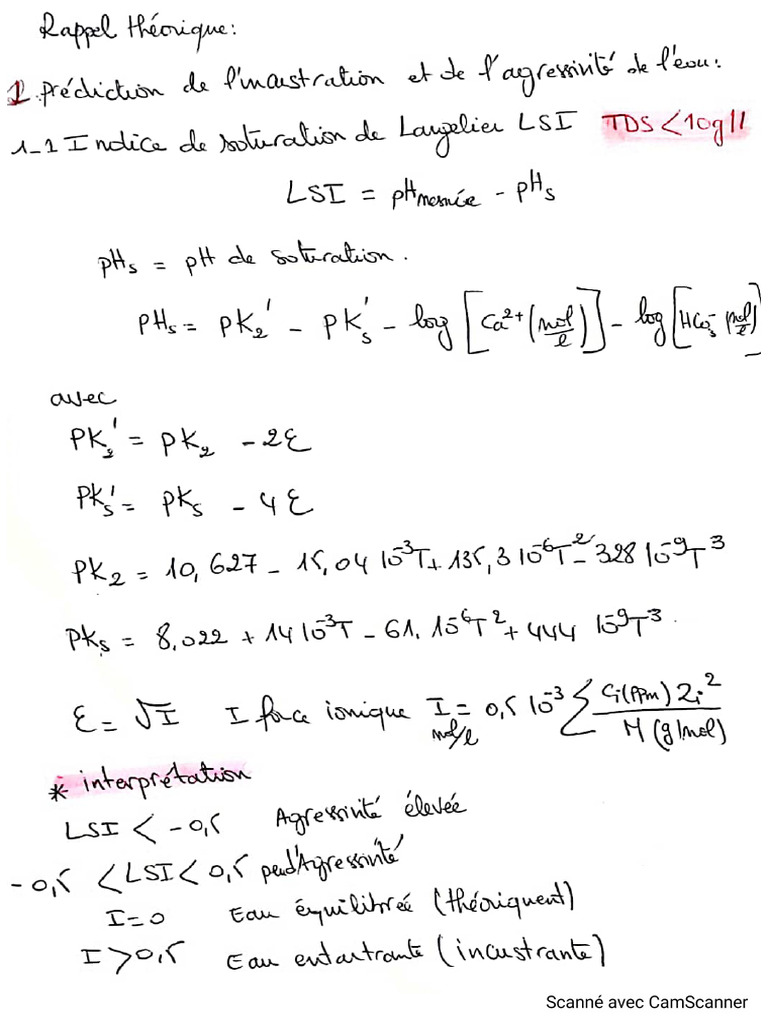 Rappel théorique:
1. Prédiction de l'incrustration et de l'agressivité de l'eau:
1-1 Indice de saturation de Langelier LSI TDS < 10g/l
LSI = pH mesurée - pHs
pHs = pH de saturation.
PHs = PK2' - PKs' - log [Ca²⁺ (mol/l)] - log [HCO3⁻ (mol/l)
avec
PK2' = PK2 - 2ε
PKs' = PKs - 4ε
PK2 = 10,627 - 15,04 10⁻³T + 135,3 10⁻⁶T² - 328 10⁻⁹T³
PKs = 8,022 + 14 10⁻³T - 61. 10⁻⁶T² + 444 10⁻⁹T³.
ε = √I I force ionique I mol/l = 0,5 10⁻³ Σ Ci(PPm) Zi² / M (g/mol)
* interprétation
LSI < -0,5 Agressivité élevée
-0,5 < LSI < 0,5 peu d'Agressivité
I=0 Eau équilibreé (théoriquent)
I > 0,5 Eau entartrante (incustrante)
Scanné avec CamScanner